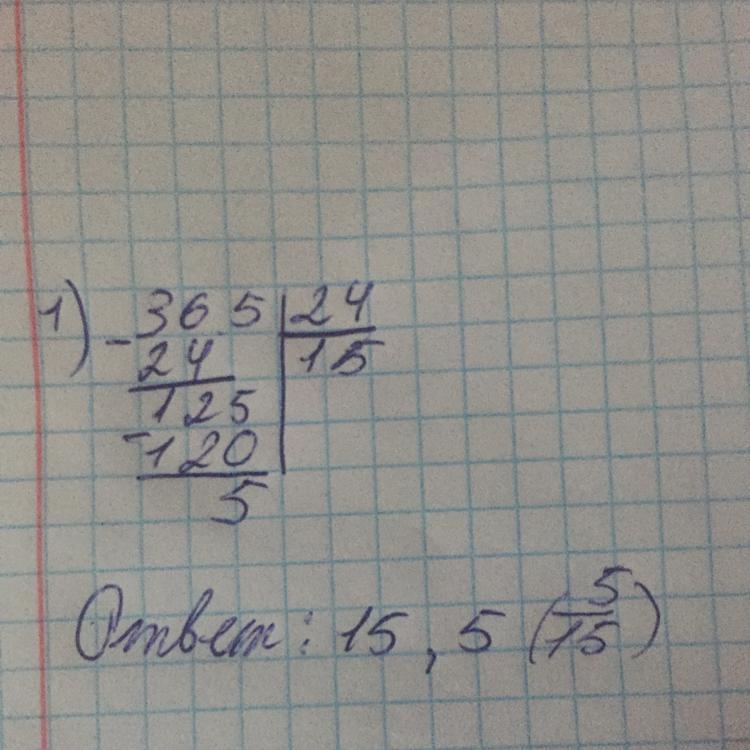 1) - 365 | 24
24 15
125
- 120
5
Ответ: 15, 5 (5/15)